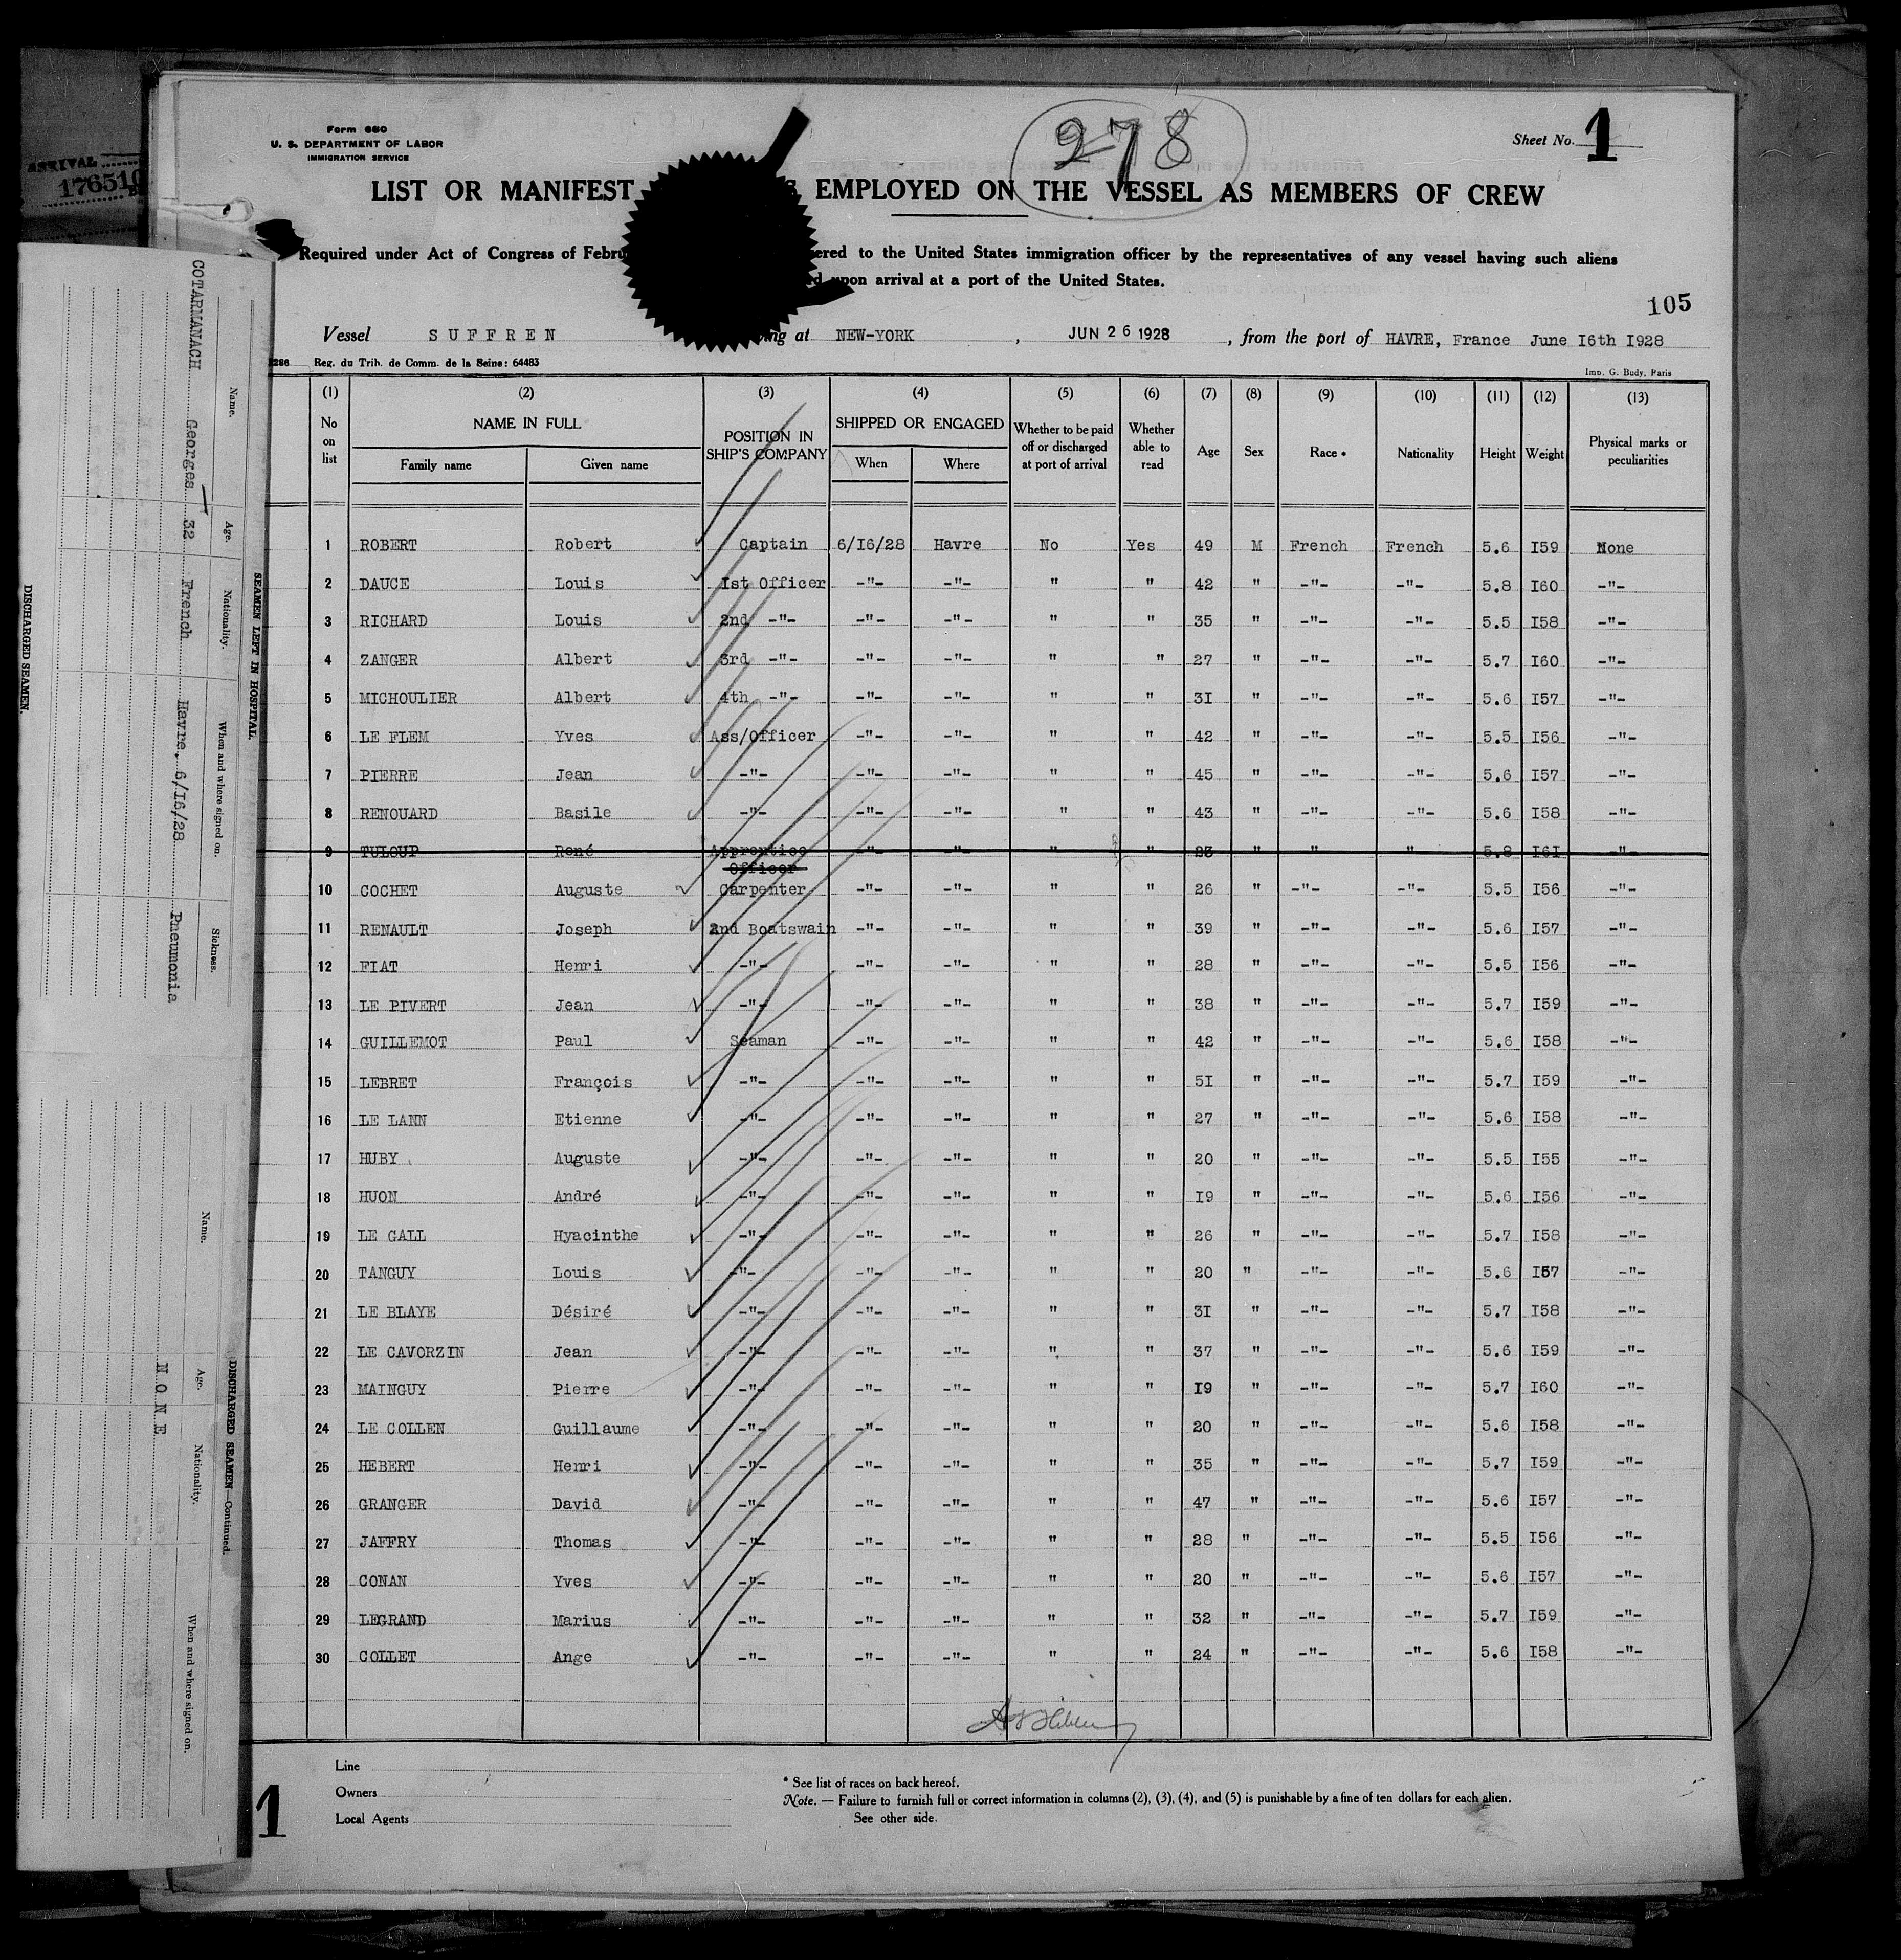 Form 680
U. S. DEPARTMENT OF LABOR
IMMIGRATION SERVICE
278
Sheet No. 1
LIST OR MANIFEST EMPLOYED ON THE VESSEL AS MEMBERS OF CREW
Required under Act of Congress of to the United States immigration officer by the representatives of any vessel having such aliens
upon arrival at a port of the United States.
105
Vessel SUFFREN at NEW-YORK , JUN 26 1928 , from the port of HAVRE, France June I6th I928
Reg. du Trib. de Comm. de la Seine: 64483
Imp. G. Body, Paris
(1) (2) (3) (4) (5) (6) (7) (8) (9) (10) (11) (12) (13)
No on list NAME IN FULL Family name Given name POSITION IN SHIP'S COMPANY SHIPPED OR ENGAGED When Where Whether to be paid off or discharged at port of arrival Whether able to read Age Sex Race * Nationality Height Weight Physical marks or peculiarities
1 ROBERT Robert Captain 6/I6/28 Havre No Yes 49 M French French 5.6 I59 None
2 DAUCE Louis 1st Officer -"- -"- " " 42 " -"- -"- 5.8 I60 -"-
3 RICHARD Louis 2nd -"- -"- -"- " " 35 " -"- -"- 5.5 I58 -"-
4 ZANGER Albert 3rd -"- -"- -"- " " 27 " -"- -"- 5.7 I60 -"-
5 MICHOULIER Albert 4th -"- -"- -"- " " 3I " -"- -"- 5.6 I57 -"-
6 LE FLEM Yves Ass/Officer -"- -"- " " 42 " -"- -"- 5.5 I56 -"-
7 PIERRE Jean -"- -"- -"- " " 45 " -"- -"- 5.6 I57 -"-
8 RENOUARD Basile -"- -"- -"- " " 43 " -"- -"- 5.6 I58 -"-
9 TULOUP René Apprentice Officer -"- -"- " " 23 " -"- -"- 5.8 I6I -"-
10 COCHET Auguste Carpenter -"- -"- " " 26 " -"- -"- 5.5 I56 -"-
11 RENAULT Joseph 2nd Boatswain -"- -"- " " 39 " -"- -"- 5.6 I57 -"-
12 FIAT Henri -"- -"- -"- " " 28 " -"- -"- 5.5 I56 -"-
13 LE PIVERT Jean -"- -"- -"- " " 38 " -"- -"- 5.7 I59 -"-
14 GUILLEMOT Paul Seaman -"- -"- " " 42 " -"- -"- 5.6 I58 -"-
15 LEBRET François -"- -"- -"- " " 5I " -"- -"- 5.7 I59 -"-
16 LE LANN Etienne -"- -"- -"- " " 27 " -"- -"- 5.6 I58 -"-
17 HUBY Auguste -"- -"- -"- " " 20 " -"- -"- 5.5 I55 -"-
18 HUON André -"- -"- -"- " " I9 " -"- -"- 5.6 I56 -"-
19 LE GALL Hyacinthe -"- -"- -"- " " 26 " -"- -"- 5.7 I58 -"-
20 TANGUY Louis -"- -"- -"- " " 20 " -"- -"- 5.6 I57 -"-
21 LE BLAYE Désiré -"- -"- -"- " " 3I " -"- -"- 5.7 I58 -"-
22 LE CAVORZIN Jean -"- -"- -"- " " 37 " -"- -"- 5.6 I59 -"-
23 MAINGUY Pierre -"- -"- -"- " " I9 " -"- -"- 5.7 I60 -"-
24 LE COLLEN Guillaume -"- -"- -"- " " 20 " -"- -"- 5.6 I58 -"-
25 HEBERT Henri -"- -"- -"- " " 35 " -"- -"- 5.7 I59 -"-
26 GRANGER David -"- -"- -"- " " 47 " -"- -"- 5.6 I57 -"-
27 JAFFRY Thomas -"- -"- -"- " " 28 " -"- -"- 5.5 I56 -"-
28 CONAN Yves -"- -"- -"- " " 20 " -"- -"- 5.6 I57 -"-
29 LEGRAND Marius -"- -"- -"- " " 32 " -"- -"- 5.7 I59 -"-
30 COLLET Ange -"- -"- -"- " " 24 " -"- -"- 5.6 I58 -"-
Line
Owners
Local Agents
* See list of races on back hereof.
Note. — Failure to furnish full or correct information in columns (2), (3), (4), and (5) is punishable by a fine of ten dollars for each alien.
See other side.
1
ARRIVAL
176510
SEAMEN LEFT IN HOSPITAL.
Name. Age. Nationality. When and where signed on. Sickness.
COTARMANACH Georges 32 French Havre, 6/I6/28 Pneumonia
DISCHARGED SEAMEN.
DISCHARGED SEAMEN—Continued.
Name. Age. Nationality. When and where signed on.
NONE